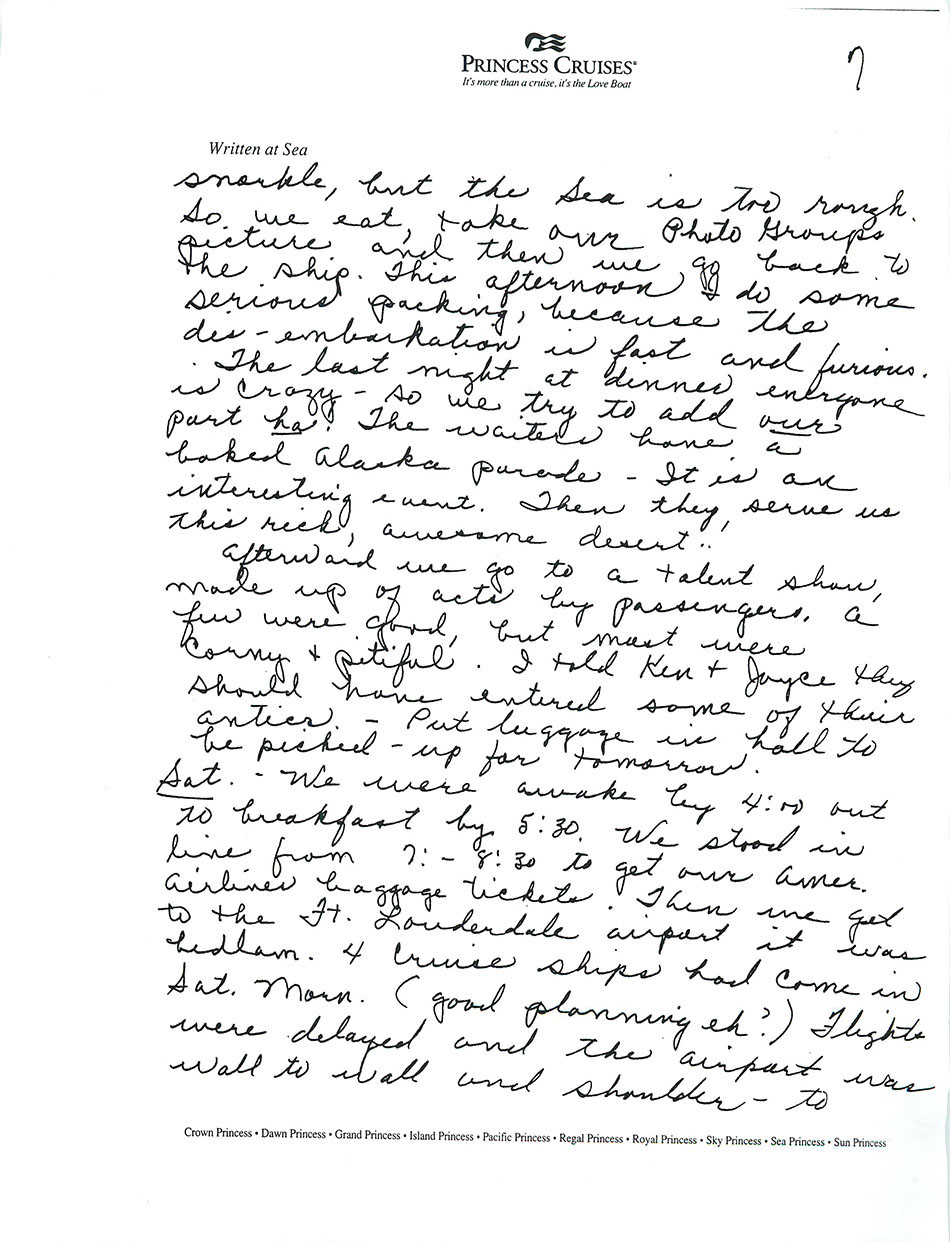 PRINCESS CRUISES®
It's more than a cruise, it's the Love Boat
7
Written at Sea
snorkle, but the Sea is too rough.
So we eat, take our Photo Groups
picture and then we go back to
the ship. This afternoon I do some
serious packing, because the
des-embarkation is fast and furious.
The last night at dinner everyone
is crazy - so we try to add our
part ha! The waiters have a
baked Alaska parade - It is an
interesting event. Then they serve us
this rich, awesome desert!.
Afterward we go to a talent show,
made up of acts by passengers. A
few were good, but most were
Corny + pitiful. I told Ken + Joyce they
should have entered some of their
antics. - Put luggage in hall to
be picked-up for tomorrow.
Sat. - We were awake by 4:00 out
to breakfast by 5:30. We stood in
line from 7:- 8:30 to get our Amer.
Airlines baggage tickets. Then we get
to the Ft. Louderdale airport it was
bedlam. 4 Cruise ships had come in
Sat. Morn. (good planning eh?) Flights
were delayed and the airport was
wall to wall and shoulder - to
Crown Princess • Dawn Princess • Grand Princess • Island Princess • Pacific Princess • Regal Princess • Royal Princess • Sky Princess • Sea Princess • Sun Princess